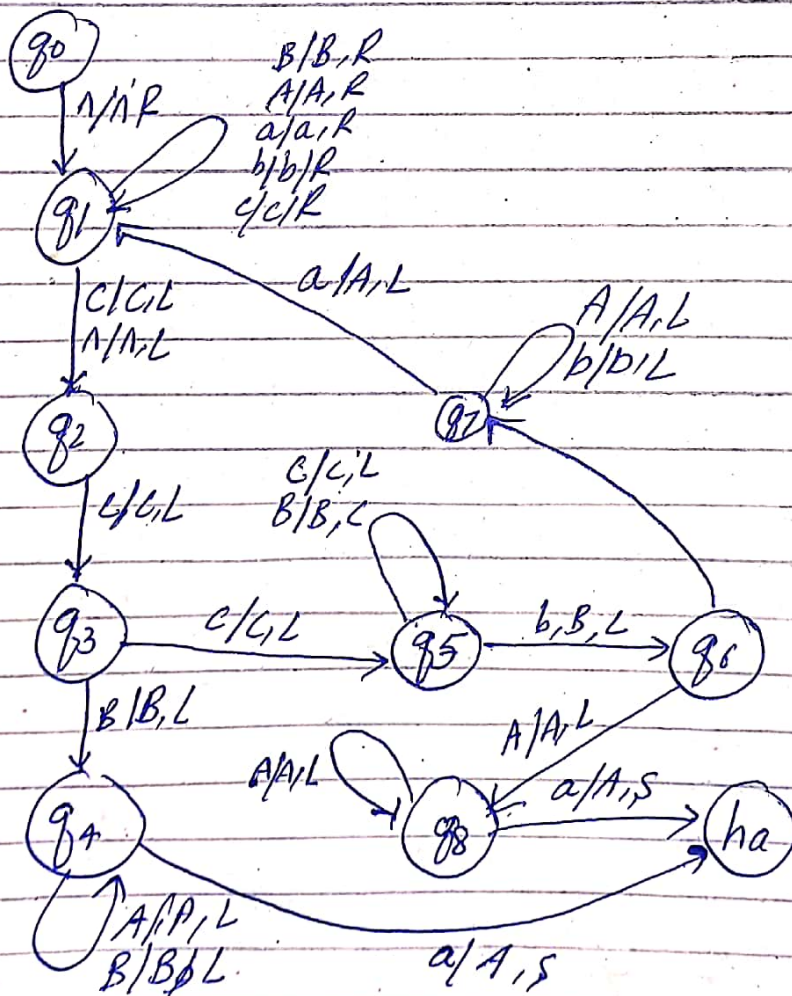 q0
B/B,R
A/A,R
^/^,R
a/a,R
b/b/R
c/c/R
q1
a/A,L
C/C,L
^/^,L
A/A,L
b/b,L
q7
q2
C/C,L
B/B,L
c/C,L
q3
c/C,L
q5
b,B,L
q6
B/B,L
A/A,L
A/A,L
a/A,S
q4
q8
ha
A/A,L
B/B,L
a/A,S